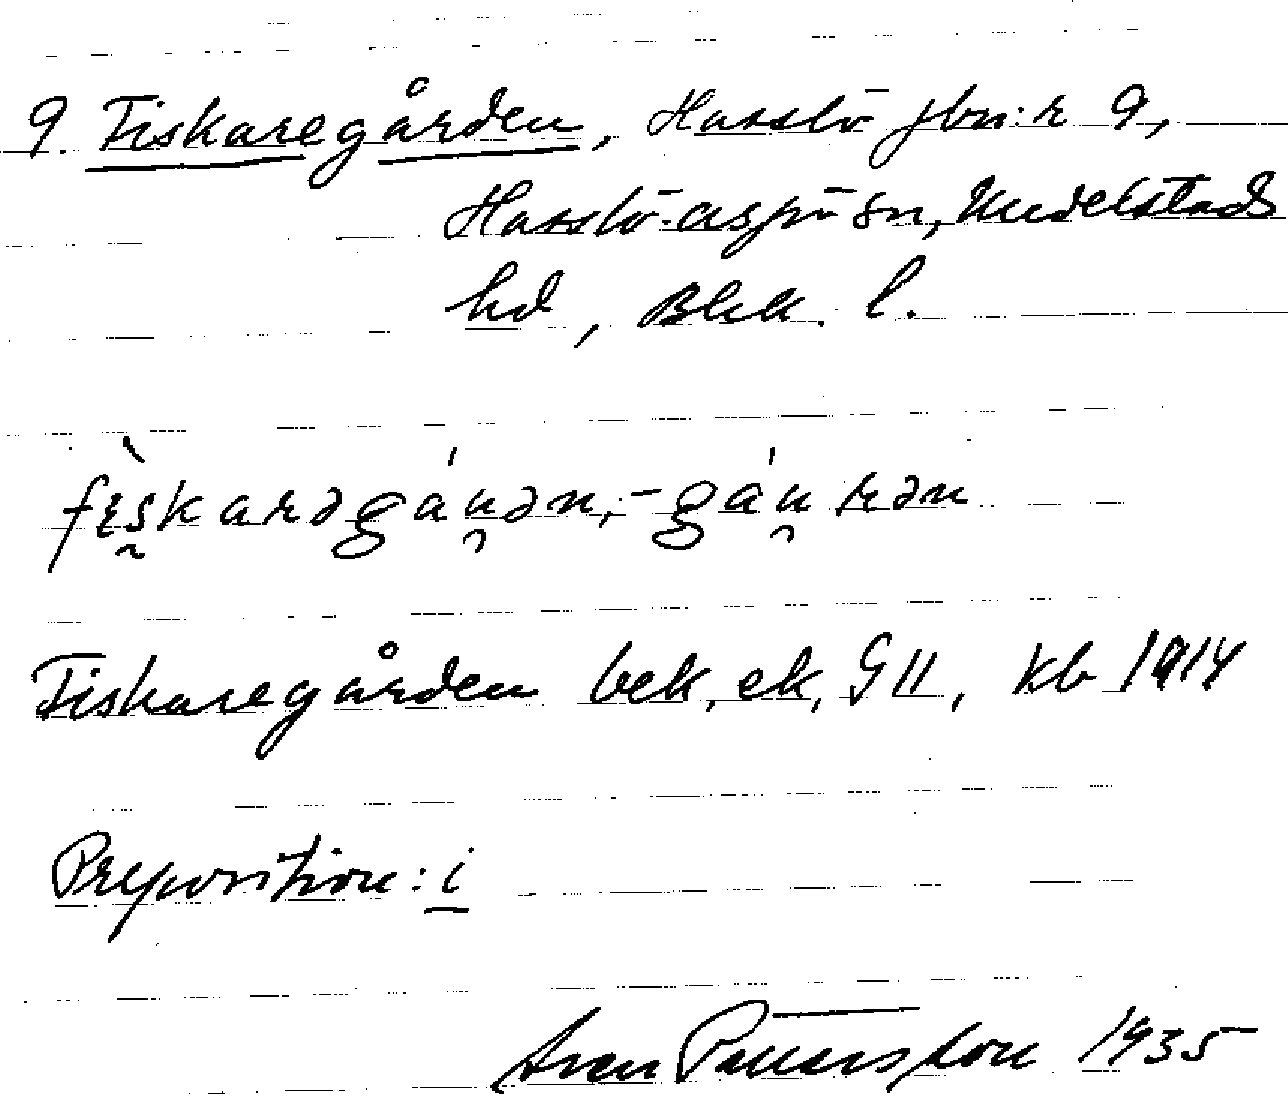 9. Fiskaregården, Hasslö jbn:r 9,
Hasslö-aspö sn, Medelstads
hd, Blek. l.
Fiskaregården bek, ek, G II, kb 1914
Preposition: i
Sven Pettersson 1935